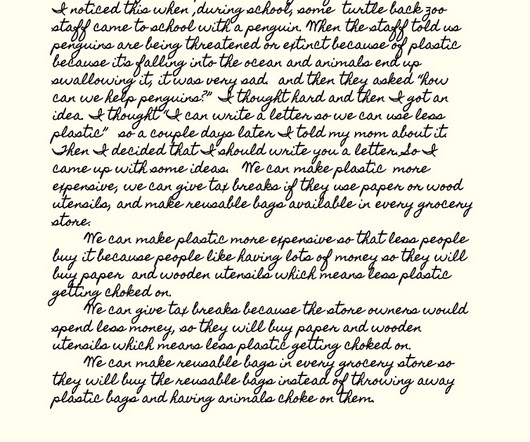 I noticed this when ,during school, some turtle back zoo
staff came to school with a penguin. When the staff told us
penguins are being threatened or extinct because of plastic
because its falling into the ocean and animals end up
swallowing it, it was very sad. and then they asked "how
can we help penguins?" I thought hard and then I got an
idea. I thought "I can write a letter so we can use less
plastic" so a couple days later I told my mom about it.
Then I decided that I should write you a letter.So I
came up with some ideas. We can make plastic more
expensive, we can give tax breaks if they use paper or wood
utensils, and make reusable bags available in every grocery
store.
We can make plastic more expensive so that less people
buy it because people like having lots of money so they will
buy paper and wooden utensils which means less plastic
getting choked on.
We can give tax breaks because the store owners would
spend less money, so they will buy paper and wooden
utensils which means less plastic getting choked on.
We can make reusable bags in every grocery store so
they will buy the reusable bags instead of throwing away
plastic bags and having animals choke on them.